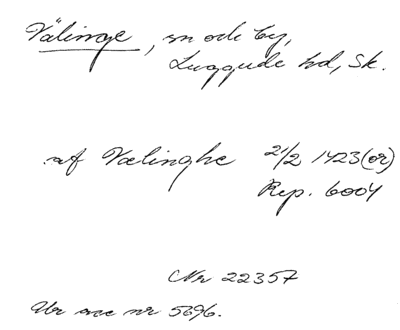 Välinge, sn och by,
Luggude hd, Sk.
af Vælinghe 21/2 1423 (or)
Rep. 6004
Nr 22357
Ur acc nr 5696.